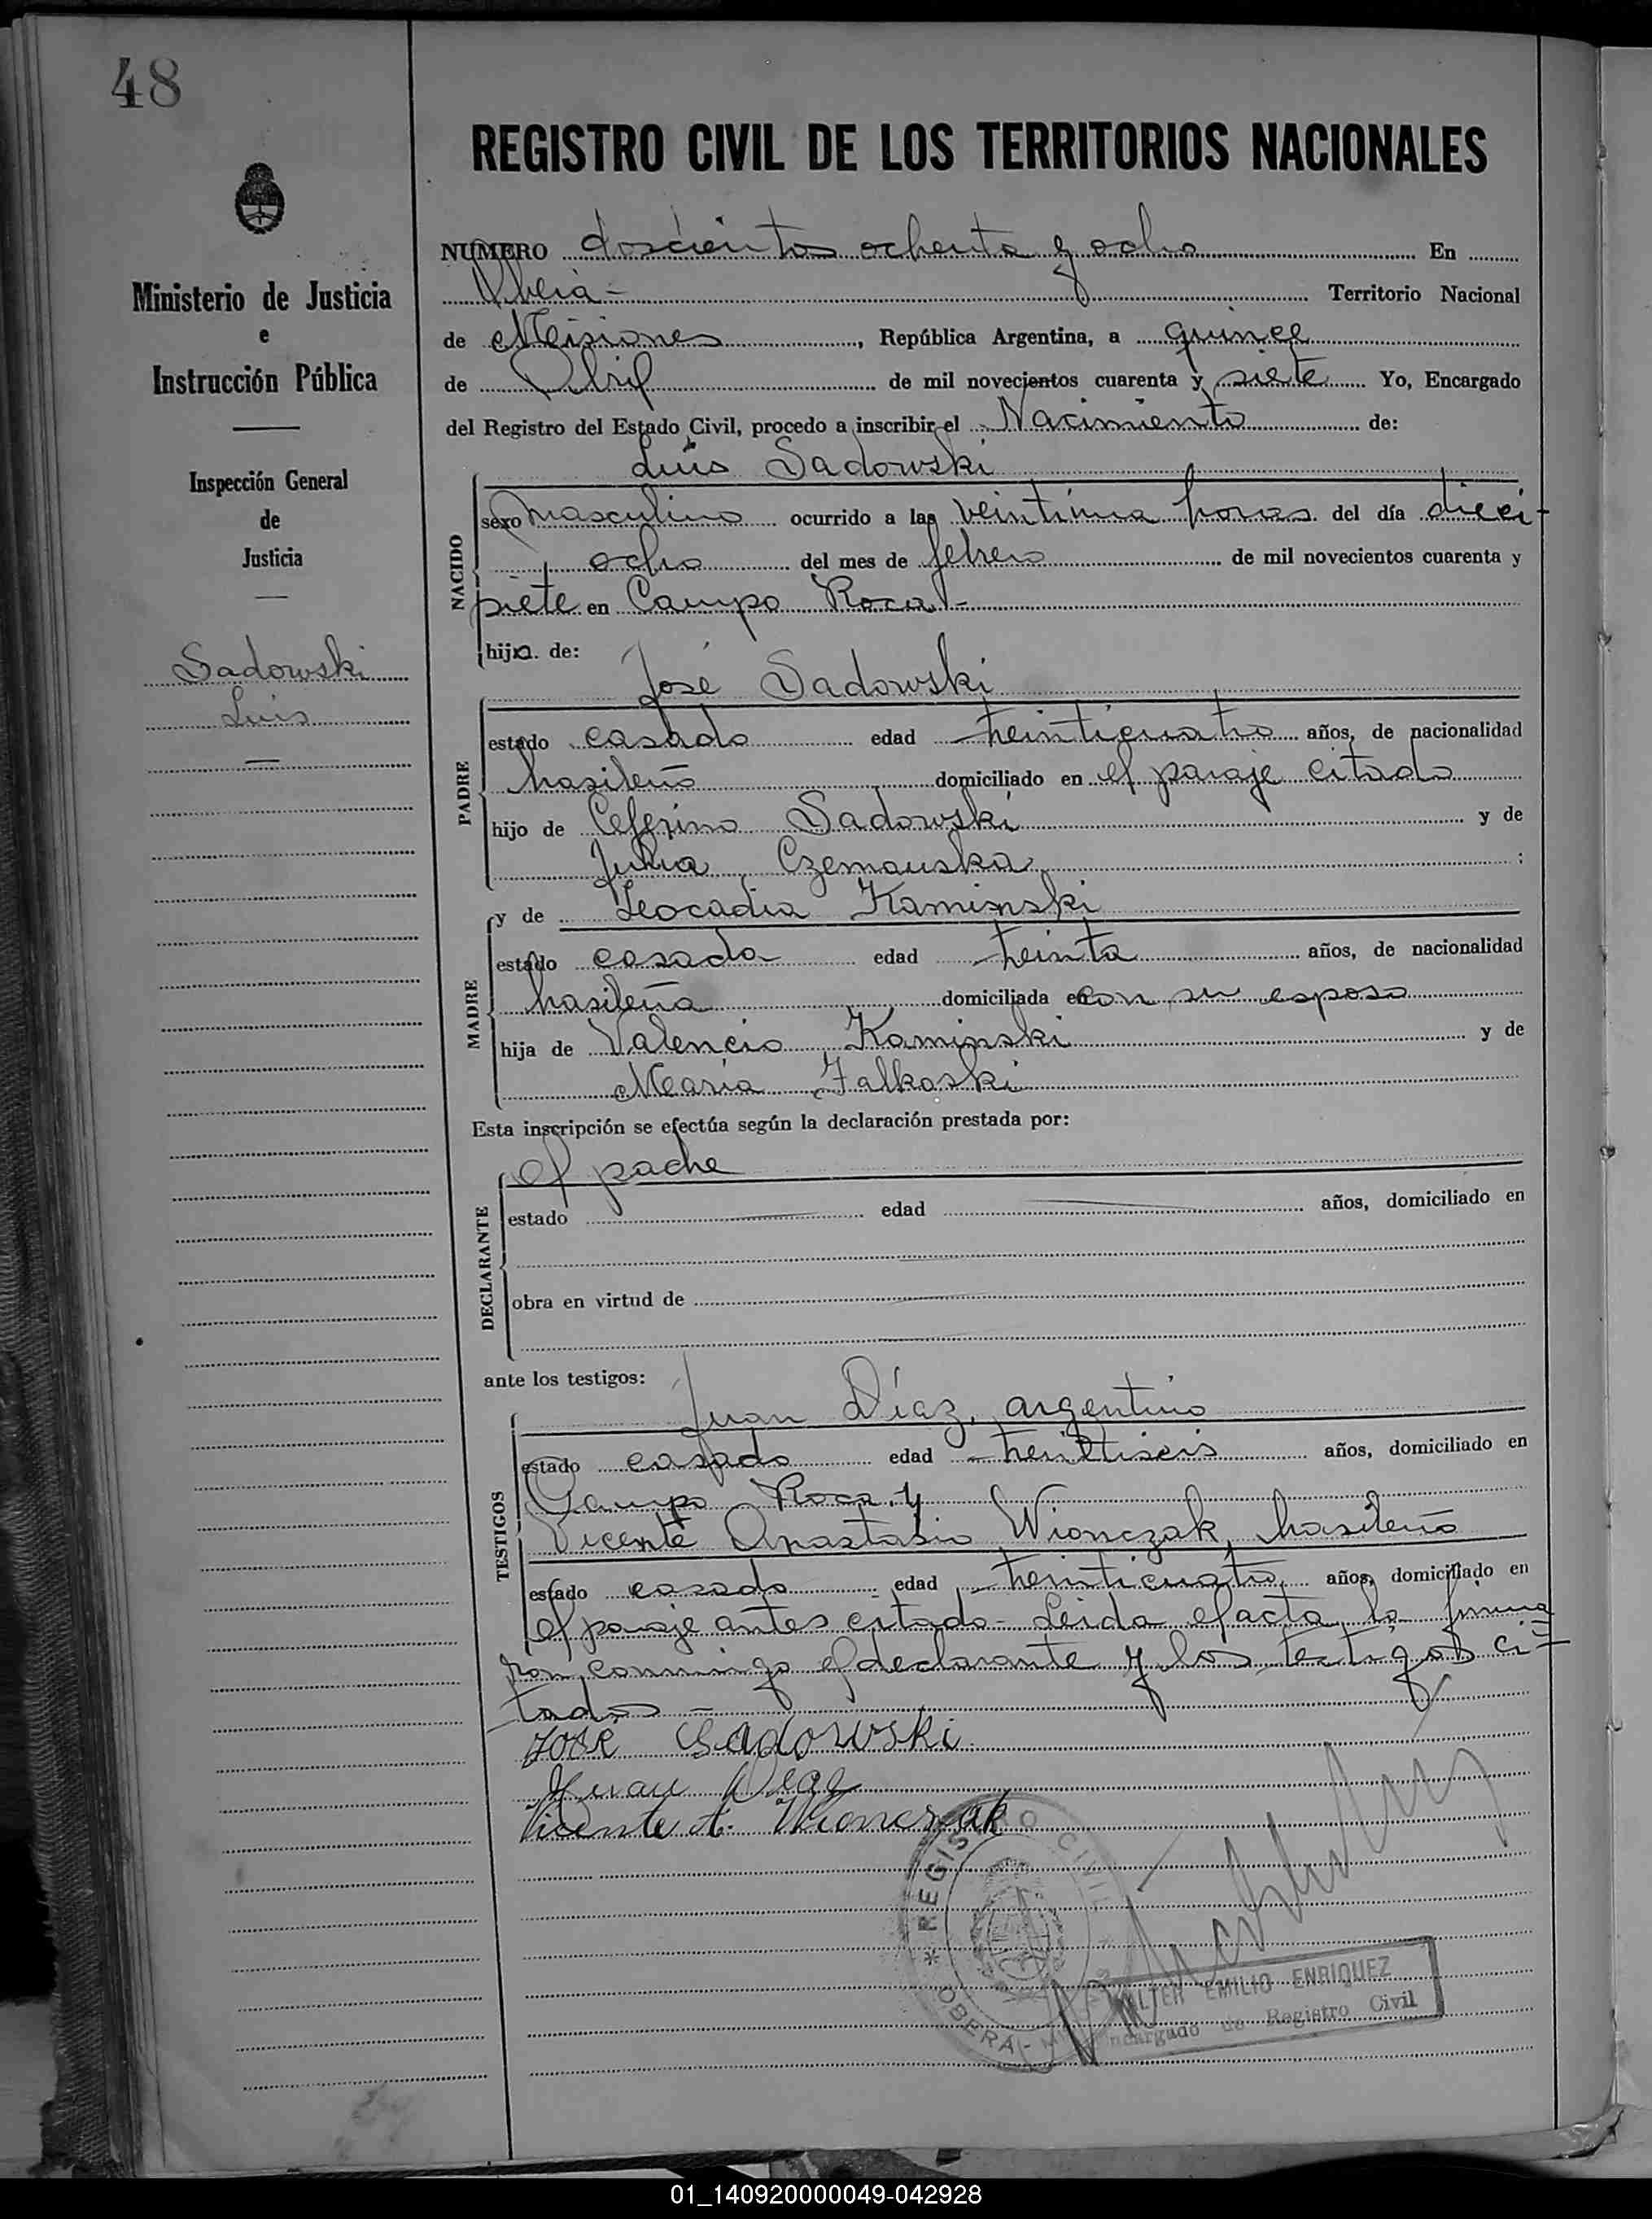 48
REGISTRO CIVIL DE LOS TERRITORIOS NACIONALES
Ministerio de Justicia
e
Instrucción Pública
Inspección General
de
Justicia
Sadowski
Luis
NUMERO doscientos ochenta y ocho En
Oberá - Territorio Nacional
de Misiones, República Argentina, a quince
de Abril de mil novecientos cuarenta y siete Yo, Encargado
del Registro del Estado Civil, procedo a inscribir el Nacimiento de:
Luis Sadowski
NACIDO
sexo masculino ocurrido a las veintiuna horas del día dieci-
ocho del mes de febrero de mil novecientos cuarenta y
siete en Campo Roca -
hijo de:
José Sadowski
PADRE
estado casado edad treinticuatro años, de nacionalidad
brasileño domiciliado en el paraje citado
hijo de Ceferino Sadowski y de
Julia Czemauska ;
y de Leocadia Kaminski
MADRE
estado casada edad treinta años, de nacionalidad
brasileña domiciliada con su esposo
hija de Valencio Kaminski y de
María Falkoski
Esta inscripción se efectúa según la declaración prestada por:
el padre
DECLARANTE
estado edad años, domiciliado en
obra en virtud de
ante los testigos:
Juan Díaz, argentino
TESTIGOS
estado casado edad treintiseis años, domiciliado en
Campo Roca y
Vicente Anastasio Wionczak, brasileño
estado casado edad treinticuatro años, domiciliado en
el paraje antes citado - Leida el acta, la firma
ron conmigo el declarante y los testigos ci-
tados -
José Sadowski
Juan Diaz
Vicente A. Wionczak
REGISTRO CIVIL
OBERÁ -
WALTER EMILIO ENRIQUEZ
Encargado de Registro Civil
01_140920000049-042928